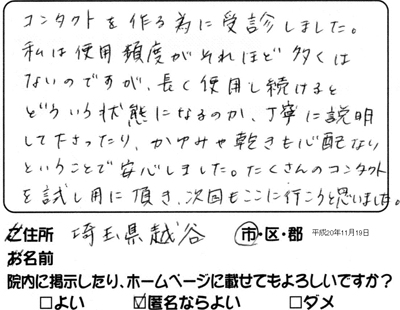 コンタクトを作る為に受診しました。
私は使用頻度がそれほど多くは
ないのですが、長く使用し続けると
どういう状態になるのか、丁寧に説明
して下さったり、かゆみや乾きも心配ない
ということで安心しました。たくさんのコンタクト
を試し用に頂き、次回もここに行こうと思いました。
ご住所 埼玉県越谷 市・区・郡 平成20年11月19日
お名前
院内に掲示したり、ホームページに載せてもよろしいですか?
□よい ☑匿名ならよい □ダメ